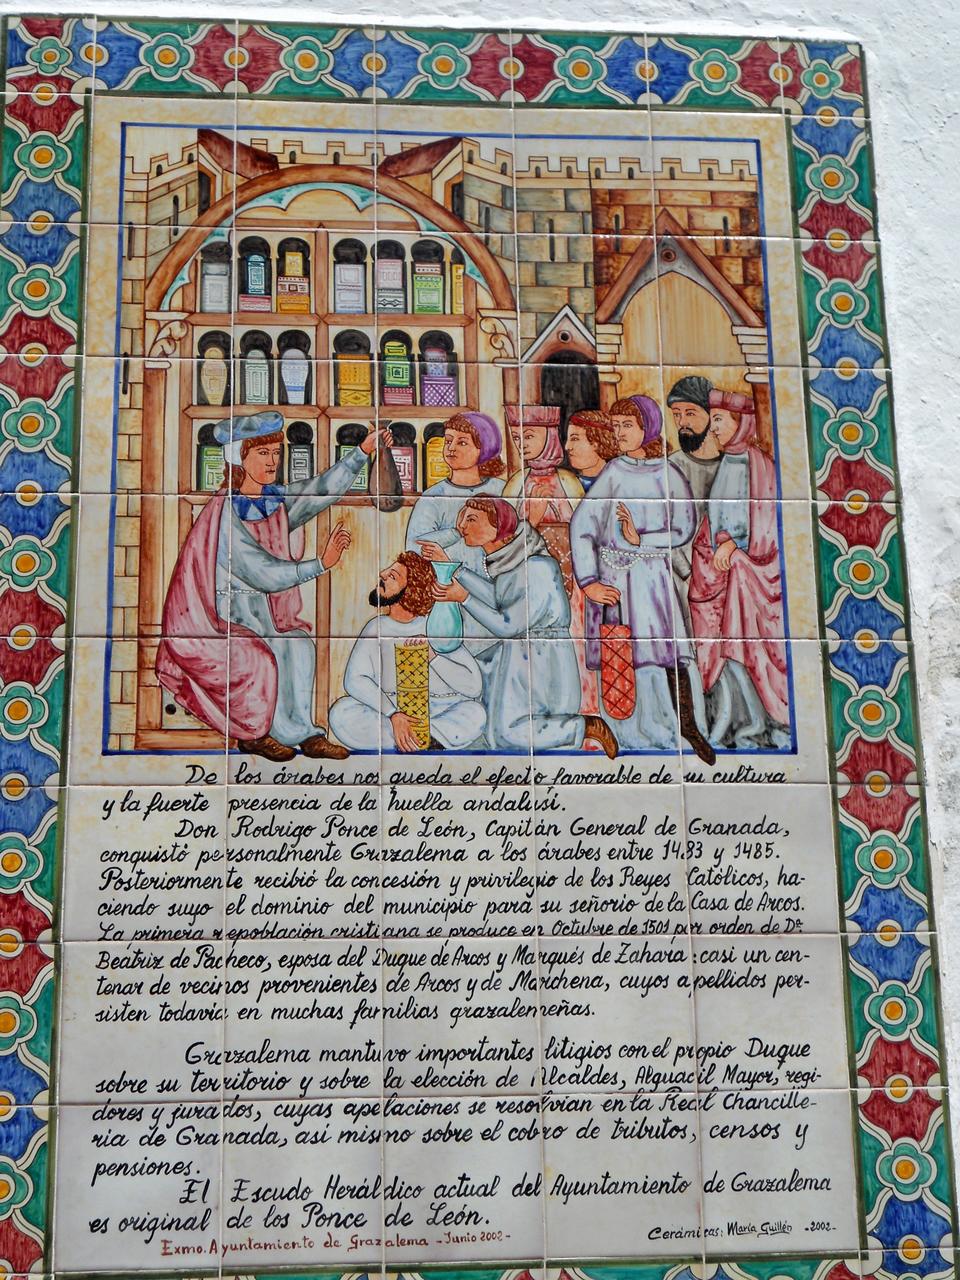 De los árabes nos queda el efecto favorable de su cultura
y la fuerte presencia de la huella andalusí.
Don Rodrigo Ponce de León, Capitán General de Granada,
conquistó personalmente Grazalema a los árabes entre 1483 y 1485.
Posteriormente recibió la concesión y privilegio de los Reyes Católicos, ha-
ciendo suyo el dominio del municipio para su señorio de la Casa de Arcos.
La primera repoblación cristiana se produce en Octubre de 1501 por orden de Dª
Beatriz de Pacheco, esposa del Duque de Arcos y Marqués de Zahara: casi un cen-
tenar de vecinos provenientes de Arcos y de Marchena, cuyos apellidos per-
sisten todavía en muchas familias grazalemeñas.
Grazalema mantuvo importantes litigios con el propio Duque
sobre su territorio y sobre la elección de Alcaldes, Alguacil Mayor, regi-
dores y jurados, cuyas apelaciones se resolvian en la Real Chancille-
ría de Granada, así mismo sobre el cobro de tributos, censos y
pensiones.
El Escudo Heráldico actual del Ayuntamiento de Grazalema
es original de los Ponce de León.
Exmo. Ayuntamiento de Grazalema - Junio 2002-
Cerámicas: María Guillén -2002-